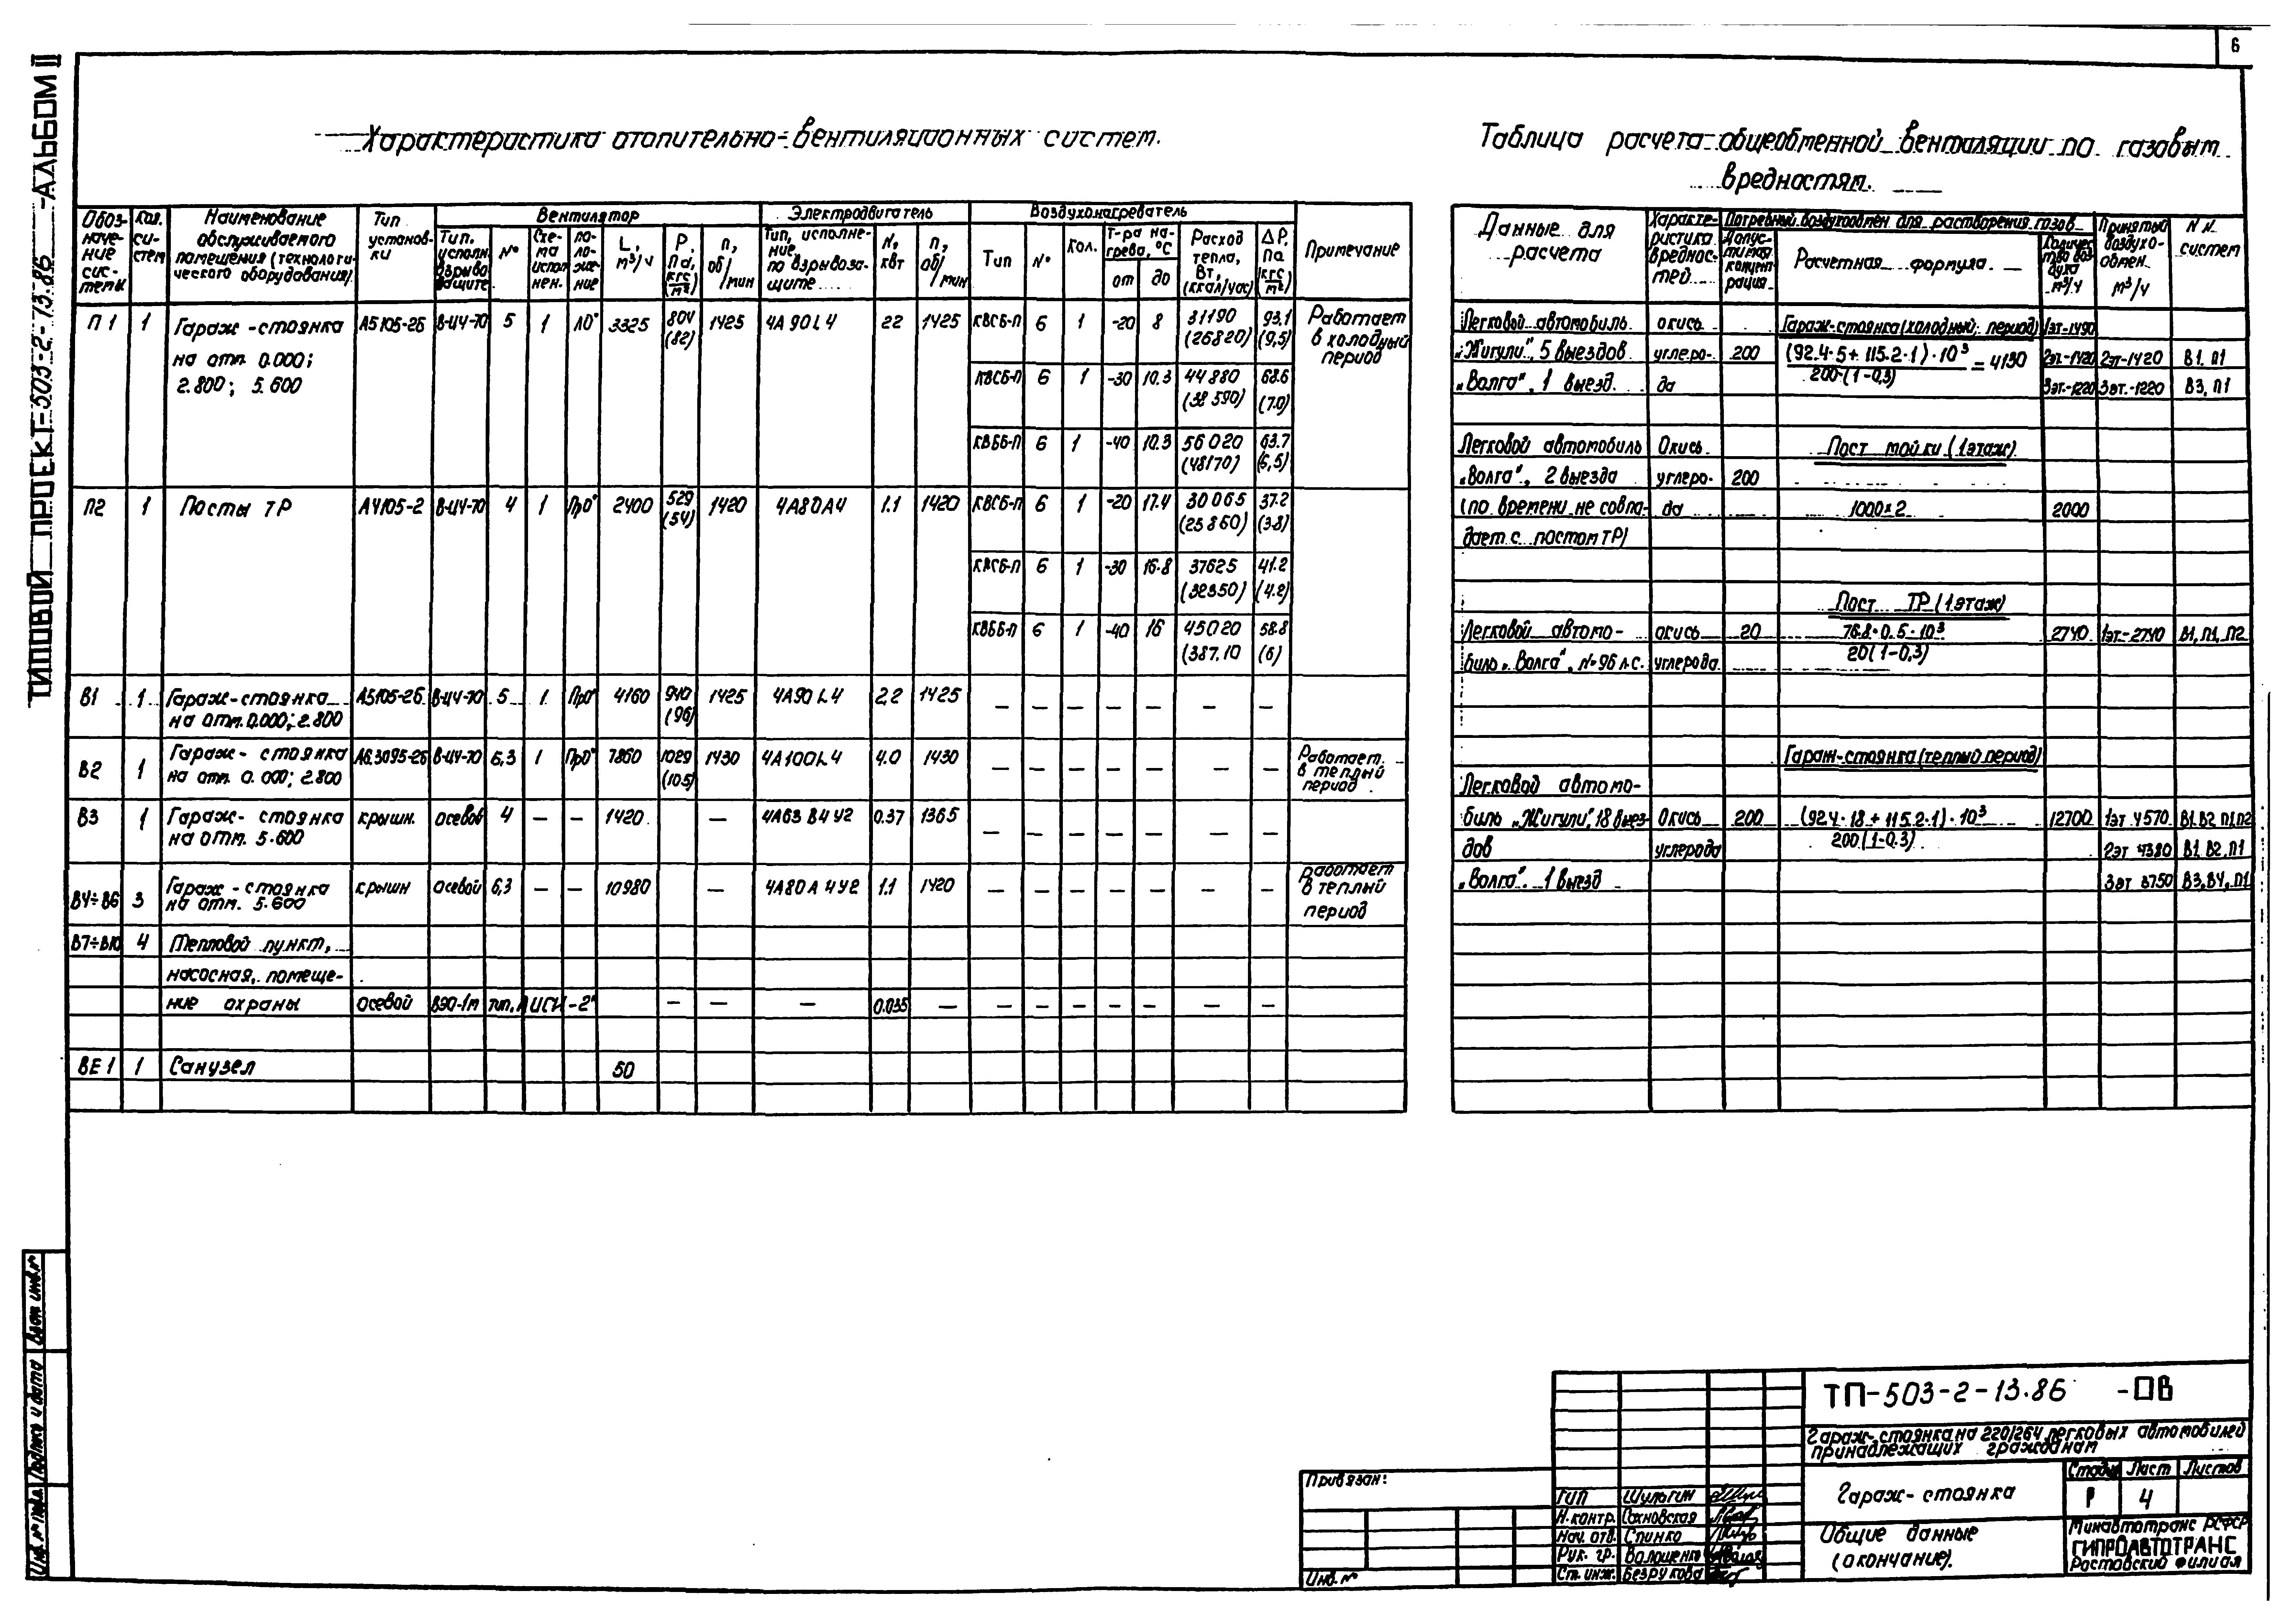 6
ТИПОВОЙ ПРОЕКТ-503-2-13.86 -АЛЬБОМ II
Характеристика отопительно-вентиляционных систем.
Обоз-наче-ние сис-темы | Кол. си-стем | Наименование обслуживаемого помещения (технологи-ческого оборудования) | Тип установ-ки | Вентилятор | Электродвигатель | Воздухонагреватель | Примечание
Тип, исполн. взрыво защите | № | Схе-ма испол нен. | по-ло-же-ние | L, м³/ч | Р, Па, (кгс/м²) | n, об/мин | Тип, исполне-ние, по взрывоза-щите | N, квт | n, об/мин | Тип | № | Кол. | Т-ра на-грева, °С от до | Расход тепла, Вт, (ккал/час) | ΔР, Па (кгс/м²)
П1 1 Гараж-стоянка А5105-2б В-Ц4-70 5 1 Л0° 3325 804 (82) 1425 4А90L4 22 1425 КВСБ-П 6 1 -20 8 31190 (26820) 93.1 (9,5) Работает в холодный период
на отм. 0.000;
2.800; 5.600
КВСБ-П 6 1 -30 10.3 44880 (38590) 68.6 (7.0)
КВББ-П 6 1 -40 10.3 56020 (48170) 63.7 (6,5)
П2 1 Посты ТР А4105-2 В-Ц4-70 4 1 Пр0° 2400 529 (54) 1420 4А80А4 1.1 1420 КВСБ-П 6 1 -20 17.4 30065 (25860) 37.2 (3.8)
КВСБ-П 6 1 -30 16.8 37625 (32350) 41.2 (4.2)
КВББ-П 6 1 -40 16 45020 (387.10 58.8 (6)
В1 1 Гараж-стоянка на отм. 0.000; 2.800 А5105-2б В-Ц4-70 5 1 Пр0° 4160 940 (96) 1425 4А90L4 2,2 1425 — — — — — — —
В2 1 Гараж-стоянка на отм. 0.000; 2.800 А6.3095-2б В-Ц4-70 6,3 1 Пр0° 7860 1029 (105) 1430 4А100L4 4.0 1430 — — — — — — — Работает в теплый период
В3 1 Гараж-стоянка на отм. 5.600 крышн. осевой 4 — — 1420 — 4А63В4У2 0.37 1365 — — — — — — —
В4÷В6 3 Гараж-стоянка на отм. 5.600 крышн осевой 6,3 — — 10980 — 4А80А4У2 1.1 1420 — — — — — — — Работает в теплый период
В7÷В10 4 Тепловой пункт,
насосная, помеще-
ние охраны осевой ВЭО-1м тип „ЦСИ-2" — — — 0.035 — — — — — — — —
ВЕ1 1 Санузел 50
Таблица расчета общеобменной вентиляции по газовым
вредностям.
Данные для расчета | Характе-ристика вреднос-тей | Потребный воздухообмен для растворения газов | Принятый воздухо-обмен. м³/ч | NN систем
Допус-тимая концент рация | Расчетная формула | Количес тво воз духа м³/ч
Легковой автомобиль окись Гараж-стоянка (холодный период) 1эт-1490
„Жигули", 5 выездов углеро- 200 (92.4·5+115.2·1)·10³ = 4130 2эт-1420 2эт-1420 В1, П1
„Волга", 1 выезд. да 200·(1-0,3) 3эт.-1220 3эт.-1220 В3, П1
Легковой автомобиль Окись Пост мойки (1этаж)
„Волга", 2 выезда углеро- 200
(по времени не совпа- да 1000×2 2000
дает с постом ТР)
Пост ТР (1этаж)
Легковой автомо- окись 20 76.8·0.5·10³ 2740 1эт-2740 В1, П1, П2
биль „Волга", N=96 л.с. углерода 20(1-0,3)
Гараж-стоянка (теплый период)
Легковой автомо-
биль „Жигули", 18 выез- Окись 200 (92.4·18+115.2·1)·10³ 12700 1эт 4570 В1, В2, П1, П2
дов углерода 200(1-0.3) 2эт 4380 В1, В2, П1
„Волга". 1 выезд 3эт 3750 В3, В4, П1
ТП-503-2-13.86 -ОВ
Гараж-стоянка на 220/264 легковых автомобилей
принадлежащих гражданам
Гараж-стоянка
Стадия Лист Листов
Р 4
Общие данные
(окончание).
Минавтотранс РСФСР
ГИПРОАВТОТРАНС
Ростовский филиал
ГИП Шульгин
Н.контр. Сахновская
Нач. отд. Спинко
Рук. гр. Волошенко
Ст. инж. Безрукова
Привязан:
Инв. №
Взам. инв. №
Подпись и дата
Инв. № подл.